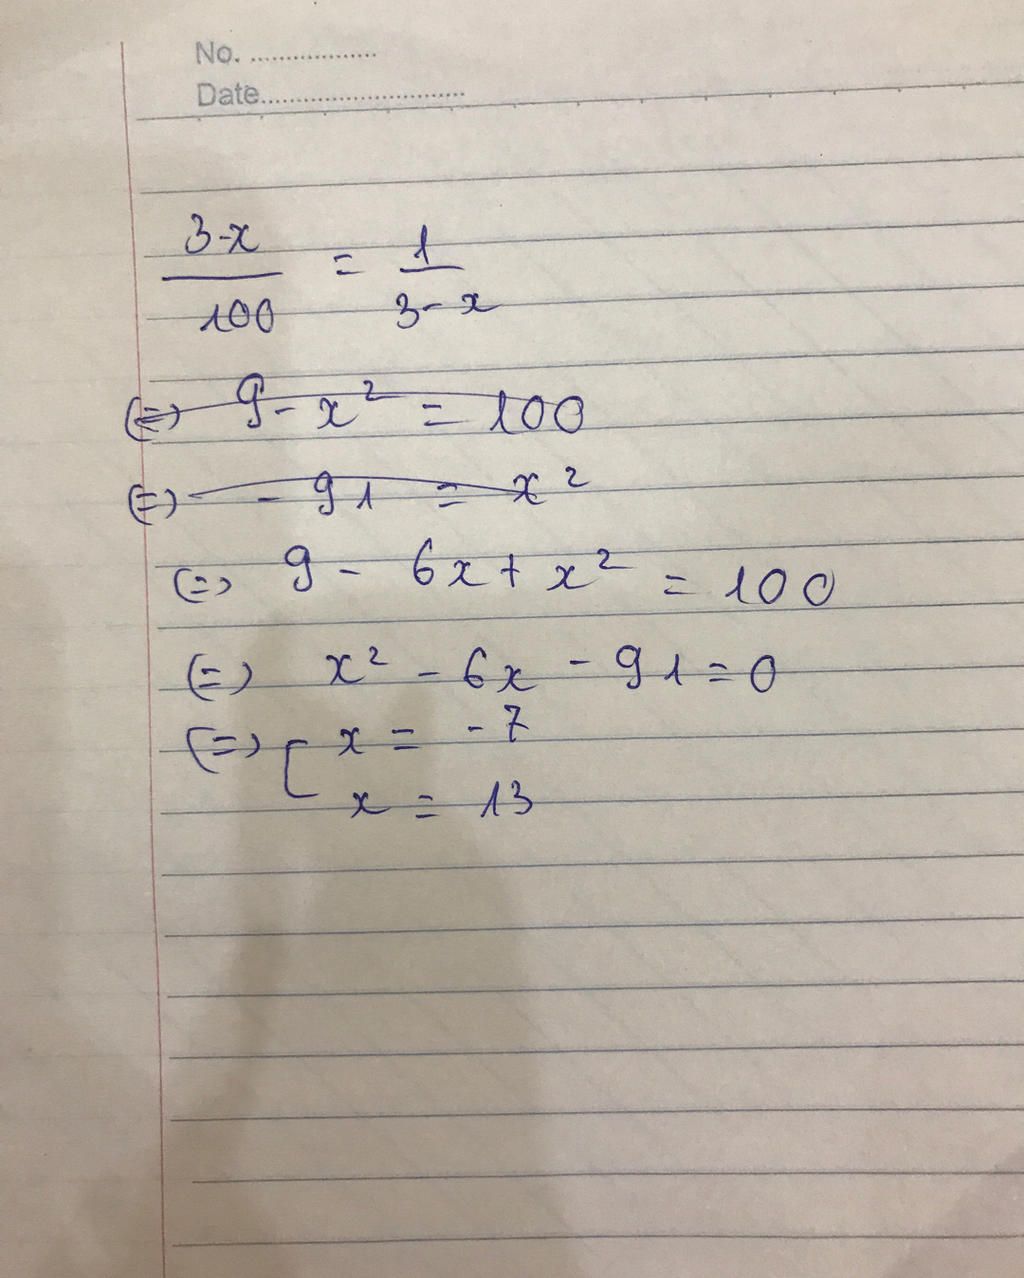 No. ..................
Date.............................
3-x / 100 = 1 / 3-x
(=) 9 - x² = 100
(=) - 91 = x²
(=) 9 - 6x + x² = 100
(=) x² - 6x - 91 = 0
(=) [ x = -7
x = 13